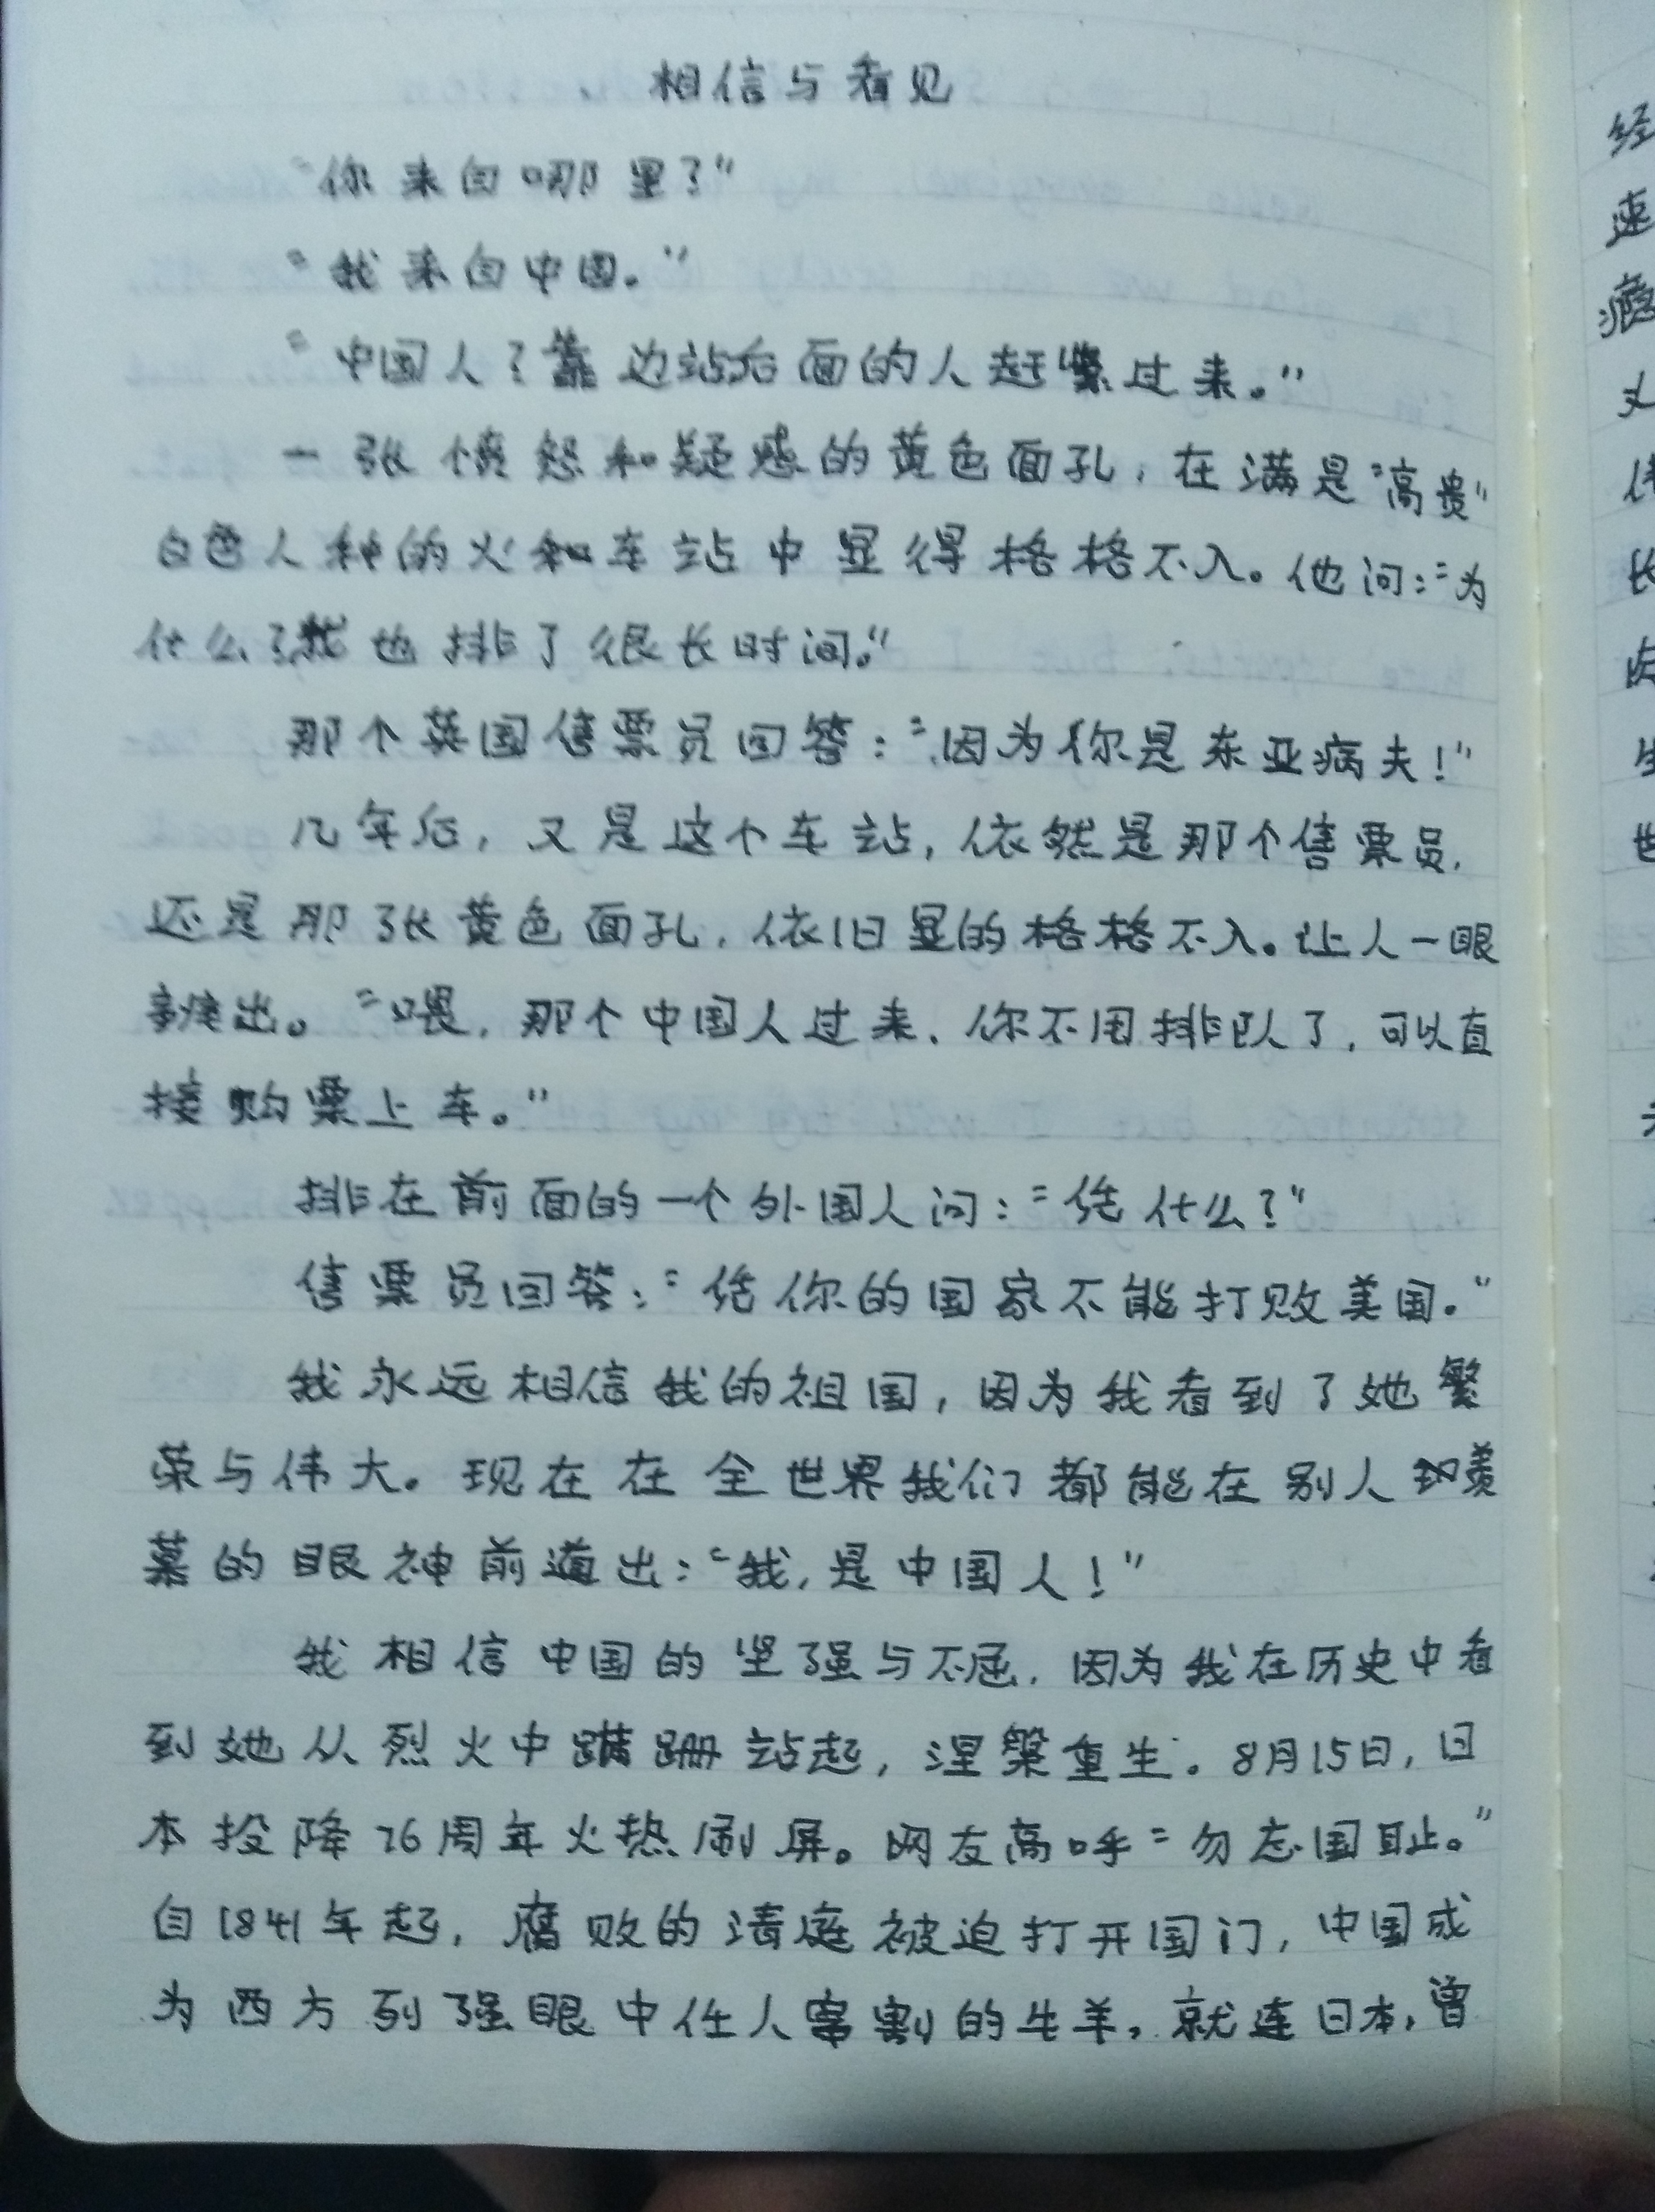 相信与看见
“你来自哪里？”
“我来自中国。”
“中国人？靠边站后面的人赶紧过来。”
一张愤怨和疑惑的黄色面孔，在满是“高贵”
白色人种的火和车站中显得格格不入。他问：“为
什么？我也排了很长时间。”
那个英国售票员回答：“因为你是东亚病夫！”
几年后，又是这个车站，依然是那个售票员，
还是那张黄色面孔，依旧显的格格不入。让人一眼
出。“喂，那个中国人过来，你不用排队了，可以直
接购票上车。”
排在前面的一个外国人问：“凭什么？”
售票员回答：“凭你的国家不能打败美国。”
我永远相信我的祖国，因为我看到了她繁
荣与伟大。现在在全世界我们都能在别人羡
慕的眼神前道出：“我，是中国人！”
我相信中国的坚强与不屈，因为我在历史中看
到她从烈火中蹒跚站起，涅槃重生。8月15日，日
本投降76周年火热刷屏。网友高呼“勿忘国耻。”
自1841年起，腐败的清庭被迫打开国门，中国成
为西方列强眼中任人宰割的牛羊，就连日本，曾
经
速
世